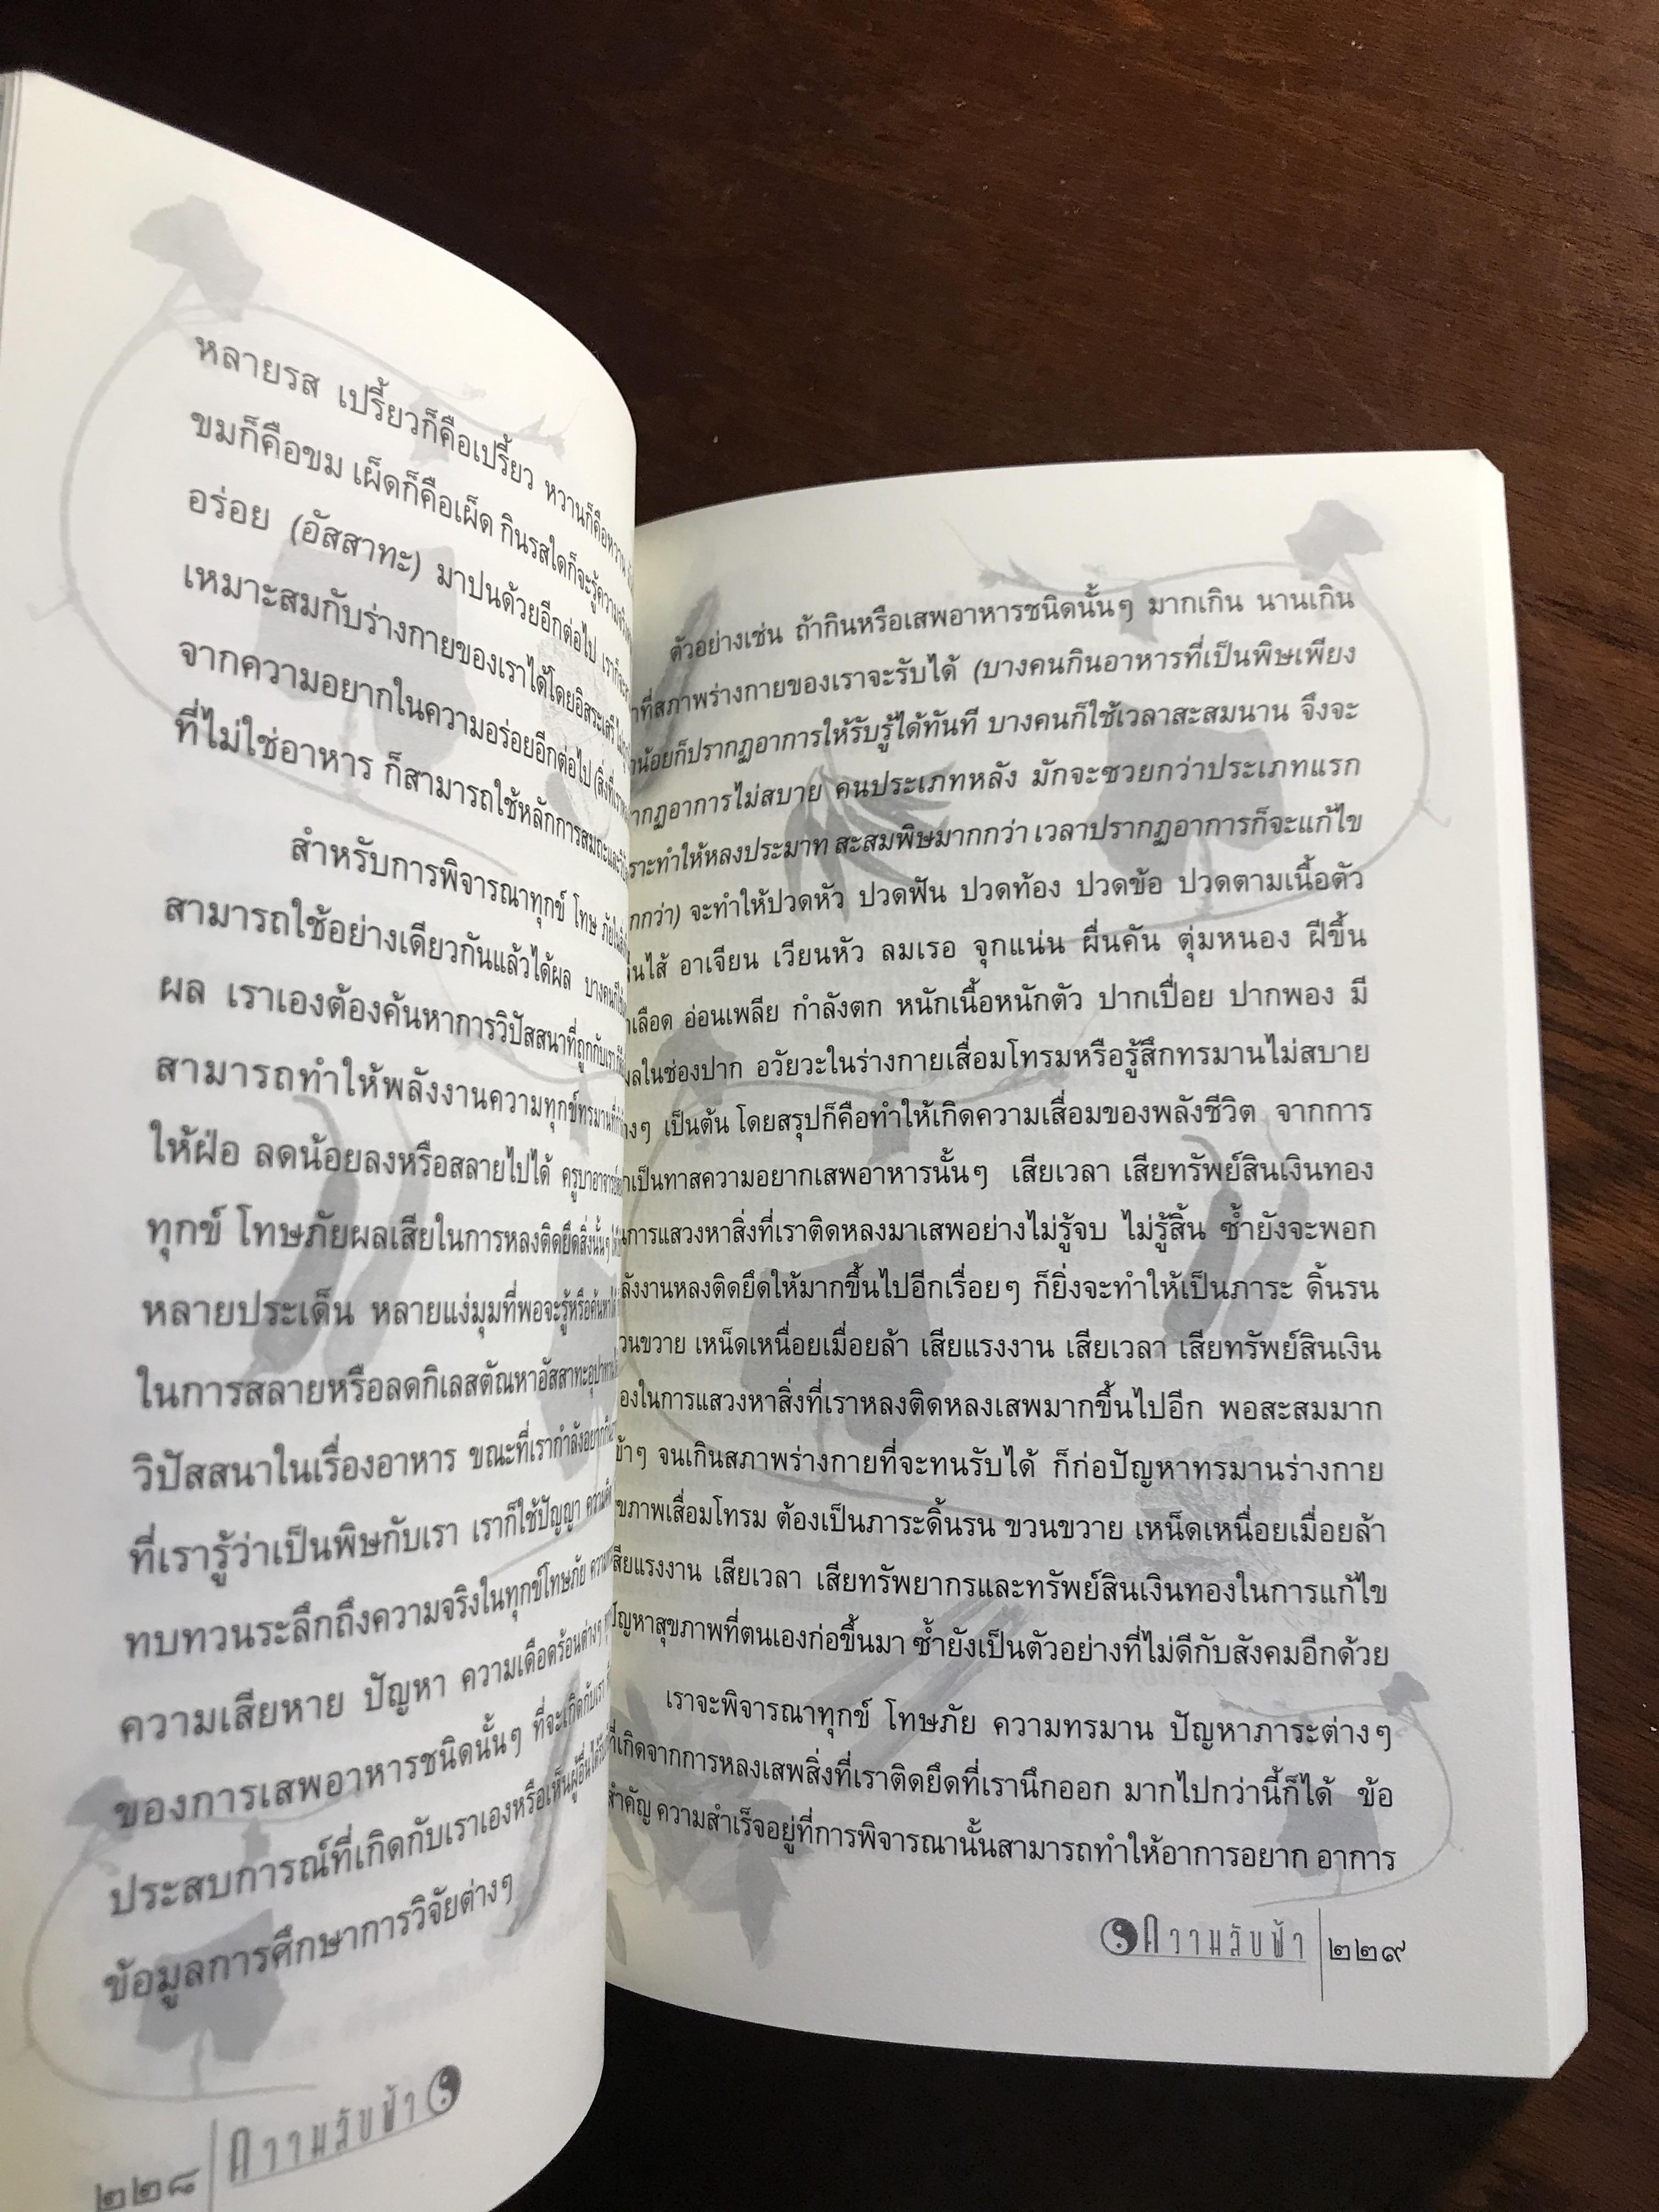 หลายรส เปรี้ยวก็คือเปรี้ยว หวานก็คือหวาน
ขมก็คือขม เผ็ดก็คือเผ็ด กินรสใดก็จะรู้ความจริง
อร่อย (อัสสาทะ) มาปนด้วยอีกต่อไป เราก็จะ
เหมาะสมกับร่างกายของเราได้โดยอิสระเสรี
จากความอยากในความอร่อยอีกต่อไป (สิ่งที่เรา
ที่ไม่ใช่อาหาร ก็สามารถใช้หลักการสมถะและ
สำหรับการพิจารณาทุกข์ โทษ ภัยใน
สามารถใช้อย่างเดียวกันแล้วได้ผล บางคนก็
ผล เราเองต้องค้นหาการวิปัสสนาที่ถูกกับเรา
สามารถทำให้พลังงานความทุกข์ทรมานที่
ให้ฝ่อ ลดน้อยลงหรือสลายไปได้ ครูบาอาจารย์
ทุกข์ โทษภัยผลเสียในการหลงติดยึดสิ่งนั้นๆ
หลายประเด็น หลายแง่มุมที่พอจะรู้หรือค้นหาได้
ในการสลายหรือลดกิเลสตัณหาอัสสาทะอุปาทาน
วิปัสสนาในเรื่องอาหาร ขณะที่เรากำลังอยาก
ที่เรารู้ว่าเป็นพิษกับเรา เราก็ใช้ปัญญา ความคิด
ทบทวนระลึกถึงความจริงในทุกข์โทษภัย
ความเสียหาย ปัญหา ความเดือดร้อนต่างๆ
ของการเสพอาหารชนิดนั้นๆ ที่จะเกิดกับเรา
ประสบการณ์ที่เกิดกับเราเองหรือเห็นผู้อื่นได้รับ
ข้อมูลการศึกษาการวิจัยต่างๆ
๒๒๘ ความลับฟ้า
ตัวอย่างเช่น ถ้ากินหรือเสพอาหารชนิดนั้นๆ มากเกิน นานเกิน
ที่สภาพร่างกายของเราจะรับได้ (บางคนกินอาหารที่เป็นพิษเพียง
น้อยก็ปรากฏอาการให้รับรู้ได้ทันที บางคนก็ใช้เวลาสะสมนาน จึงจะ
ากฏอาการไม่สบาย คนประเภทหลัง มักจะซวยกว่าประเภทแรก
ราะทำให้หลงประมาท สะสมพิษมากกว่า เวลาปรากฏอาการก็จะแก้ไข
กกว่า) จะทำให้ปวดหัว ปวดฟัน ปวดท้อง ปวดข้อ ปวดตามเนื้อตัว
ไส้ อาเจียน เวียนหัว ลมเรอ จุกแน่น ผื่นคัน ตุ่มหนอง ฝีขึ้น
เลือด อ่อนเพลีย กำลังตก หนักเนื้อหนักตัว ปากเปื่อย ปากพอง มี
ผลในช่องปาก อวัยวะในร่างกายเสื่อมโทรมหรือรู้สึกทรมานไม่สบาย
างๆ เป็นต้น โดยสรุปก็คือทำให้เกิดความเสื่อมของพลังชีวิต จากการ
กเป็นทาสความอยากเสพอาหารนั้นๆ เสียเวลา เสียทรัพย์สินเงินทอง
นการแสวงหาสิ่งที่เราติดหลงมาเสพอย่างไม่รู้จบ ไม่รู้สิ้น ซ้ำยังจะพอก
ลังงานหลงติดยึดให้มากขึ้นไปอีกเรื่อยๆ ก็ยิ่งจะทำให้เป็นภาระ ดิ้นรน
วนขวาย เหน็ดเหนื่อยเมื่อยล้า เสียแรงงาน เสียเวลา เสียทรัพย์สินเงิน
องในการแสวงหาสิ่งที่เราหลงติดหลงเสพมากขึ้นไปอีก พอสะสมมาก
ข้าๆ จนเกินสภาพร่างกายที่จะทนรับได้ ก็ก่อปัญหาทรมานร่างกาย
ขภาพเสื่อมโทรม ต้องเป็นภาระดิ้นรน ขวนขวาย เหน็ดเหนื่อยเมื่อยล้า
สียแรงงาน เสียเวลา เสียทรัพยากรและทรัพย์สินเงินทองในการแก้ไข
ปัญหาสุขภาพที่ตนเองก่อขึ้นมา ซ้ำยังเป็นตัวอย่างที่ไม่ดีกับสังคมอีกด้วย
เราจะพิจารณาทุกข์ โทษภัย ความทรมาน ปัญหาภาระต่างๆ
ที่เกิดจากการหลงเสพสิ่งที่เราติดยึดที่เรานึกออก มากไปกว่านี้ก็ได้ ข้อ
สำคัญ ความสำเร็จอยู่ที่การพิจารณานั้นสามารถทำให้อาการอยาก อาการ
ความลับฟ้า ๒๒๙